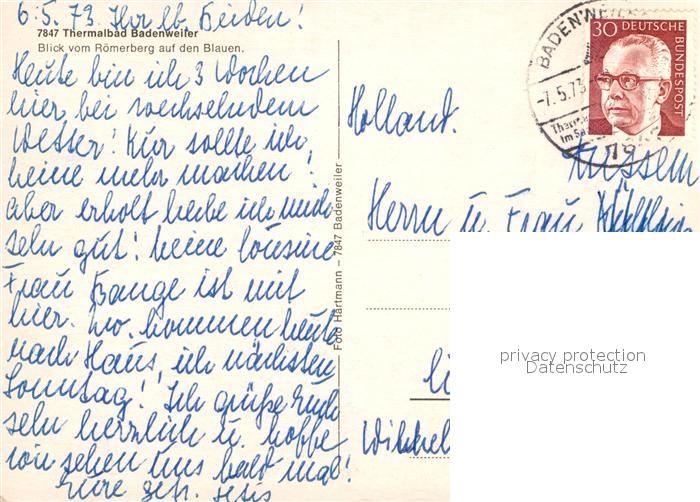 6.5.73. Ihr lb. Beiden!
7847 Thermalbad Badenweiler
Blick vom Römerberg auf den Blauen.
Heute bin ich 3 Wochen
hier bei wechselndem
Wetter! Kur sollte ich
keine mehr machen!
Aber erholt habe ich mich
sehr gut! Meine Cousine
Frau Bange ist mit
hier. kommen heute
nach Haus, ich nächsten
Sonntag! Ich grüße Euch
sehr herzlich u. hoffe
wir sehen uns bald mal!
Eure
Foto Hartmann – 7847 Badenweiler
BADENWEILER
-7.5.73
30 DEUTSCHE BUNDESPOST
Holland.
Herrn u. Frau
privacy protection
Datenschutz